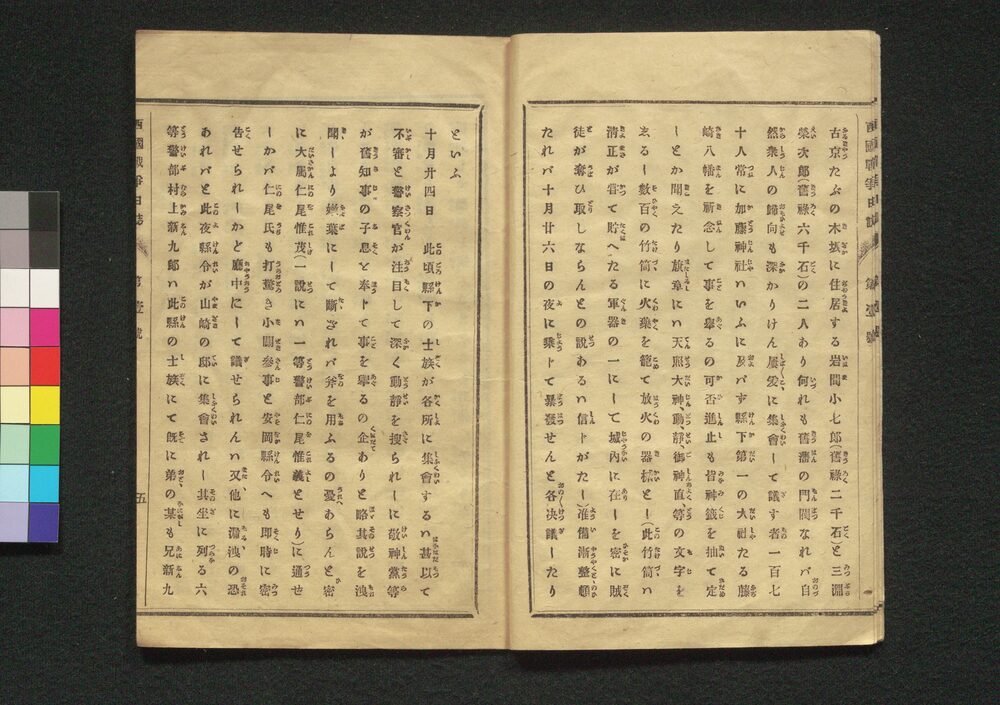 古京たぶの木坂に住居する岩間小七郎(舊祿二千石)と三淵
榮次郎(舊祿六千石)の二人あり何れも舊藩の門閥なれバ自
然衆人の歸向も深かりけん屢爰に集會して議す者一百七
十人常に加藤神社ハいふに及バず縣下第一の大社たる藤
崎八幡を祈念して事を擧るの可否進止も皆神籤を抽て定
しとか聞えたり旗章にハ天照大神、動、靜、御神直等の文字を
ゑるし數百の竹筒に火藥を籠て放火の器械とし(此竹筒ハ
清正が甞て貯へたる軍器の一にして城内に在しを密に賊
徒が奪ひ取しならんとの説あるハ信トがたし)准備漸整頓
たれバ十月廿六日の夜に乗トて暴發せんと各决議したり
といふ
十月廿四日 此頃縣下の士族が各所に集會するハ甚以て
不審と警察官が注目して深く動靜を搜られしに敬神黨等
が舊知事の子息を奉トて事を擧るの企ありと略其説を洩
聞しより嫩葉にして斷ざれバ斧を用ふるの憂あらんと密
に大屬仁尾惟茂(一説にハ一等警部仁尾惟義とせり)に通せ
しかバ仁尾氏も打驚き小關參事と安岡縣令へも即時に密
告せられしかど廳中にして議せられんハ又他に漏洩の恐
あれバと此夜縣令が山崎の邸に集會されし其坐に列る六
等警部村上新九郎ハ此縣の士族にて既に弟の某も兄新九
西國戰爭日誌 第壹號 五